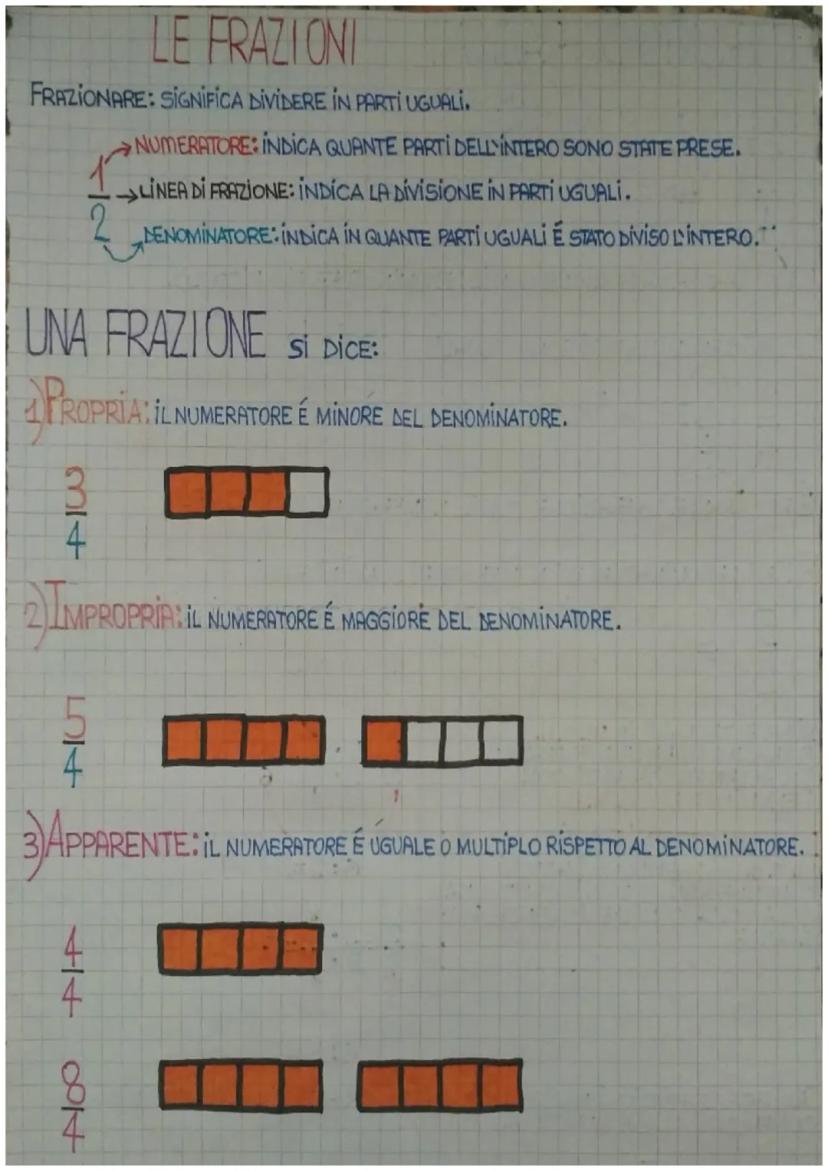 LE FRAZIONI
FRAZIONARE: SIGNIFICA DIVIDERE IN PARTI UGUALI.
1 → NUMERATORE: INDICA QUANTE PARTI DELL'INTERO SONO STATE PRESE.
→ LINEA DI FRAZIONE: INDICA LA DIVISIONE IN PARTI UGUALI.
2 → DENOMINATORE: INDICA IN QUANTE PARTI UGUALI É STATO DIVISO L'INTERO.
UNA FRAZIONE SI DICE:
1) PROPRIA: IL NUMERATORE É MINORE DEL DENOMINATORE.
3
4
2) IMPROPRIA: IL NUMERATORE É MAGGIORE DEL DENOMINATORE.
5
4
3) APPARENTE: IL NUMERATORE É UGUALE O MULTIPLO RISPETTO AL DENOMINATORE.
4
4
8
4